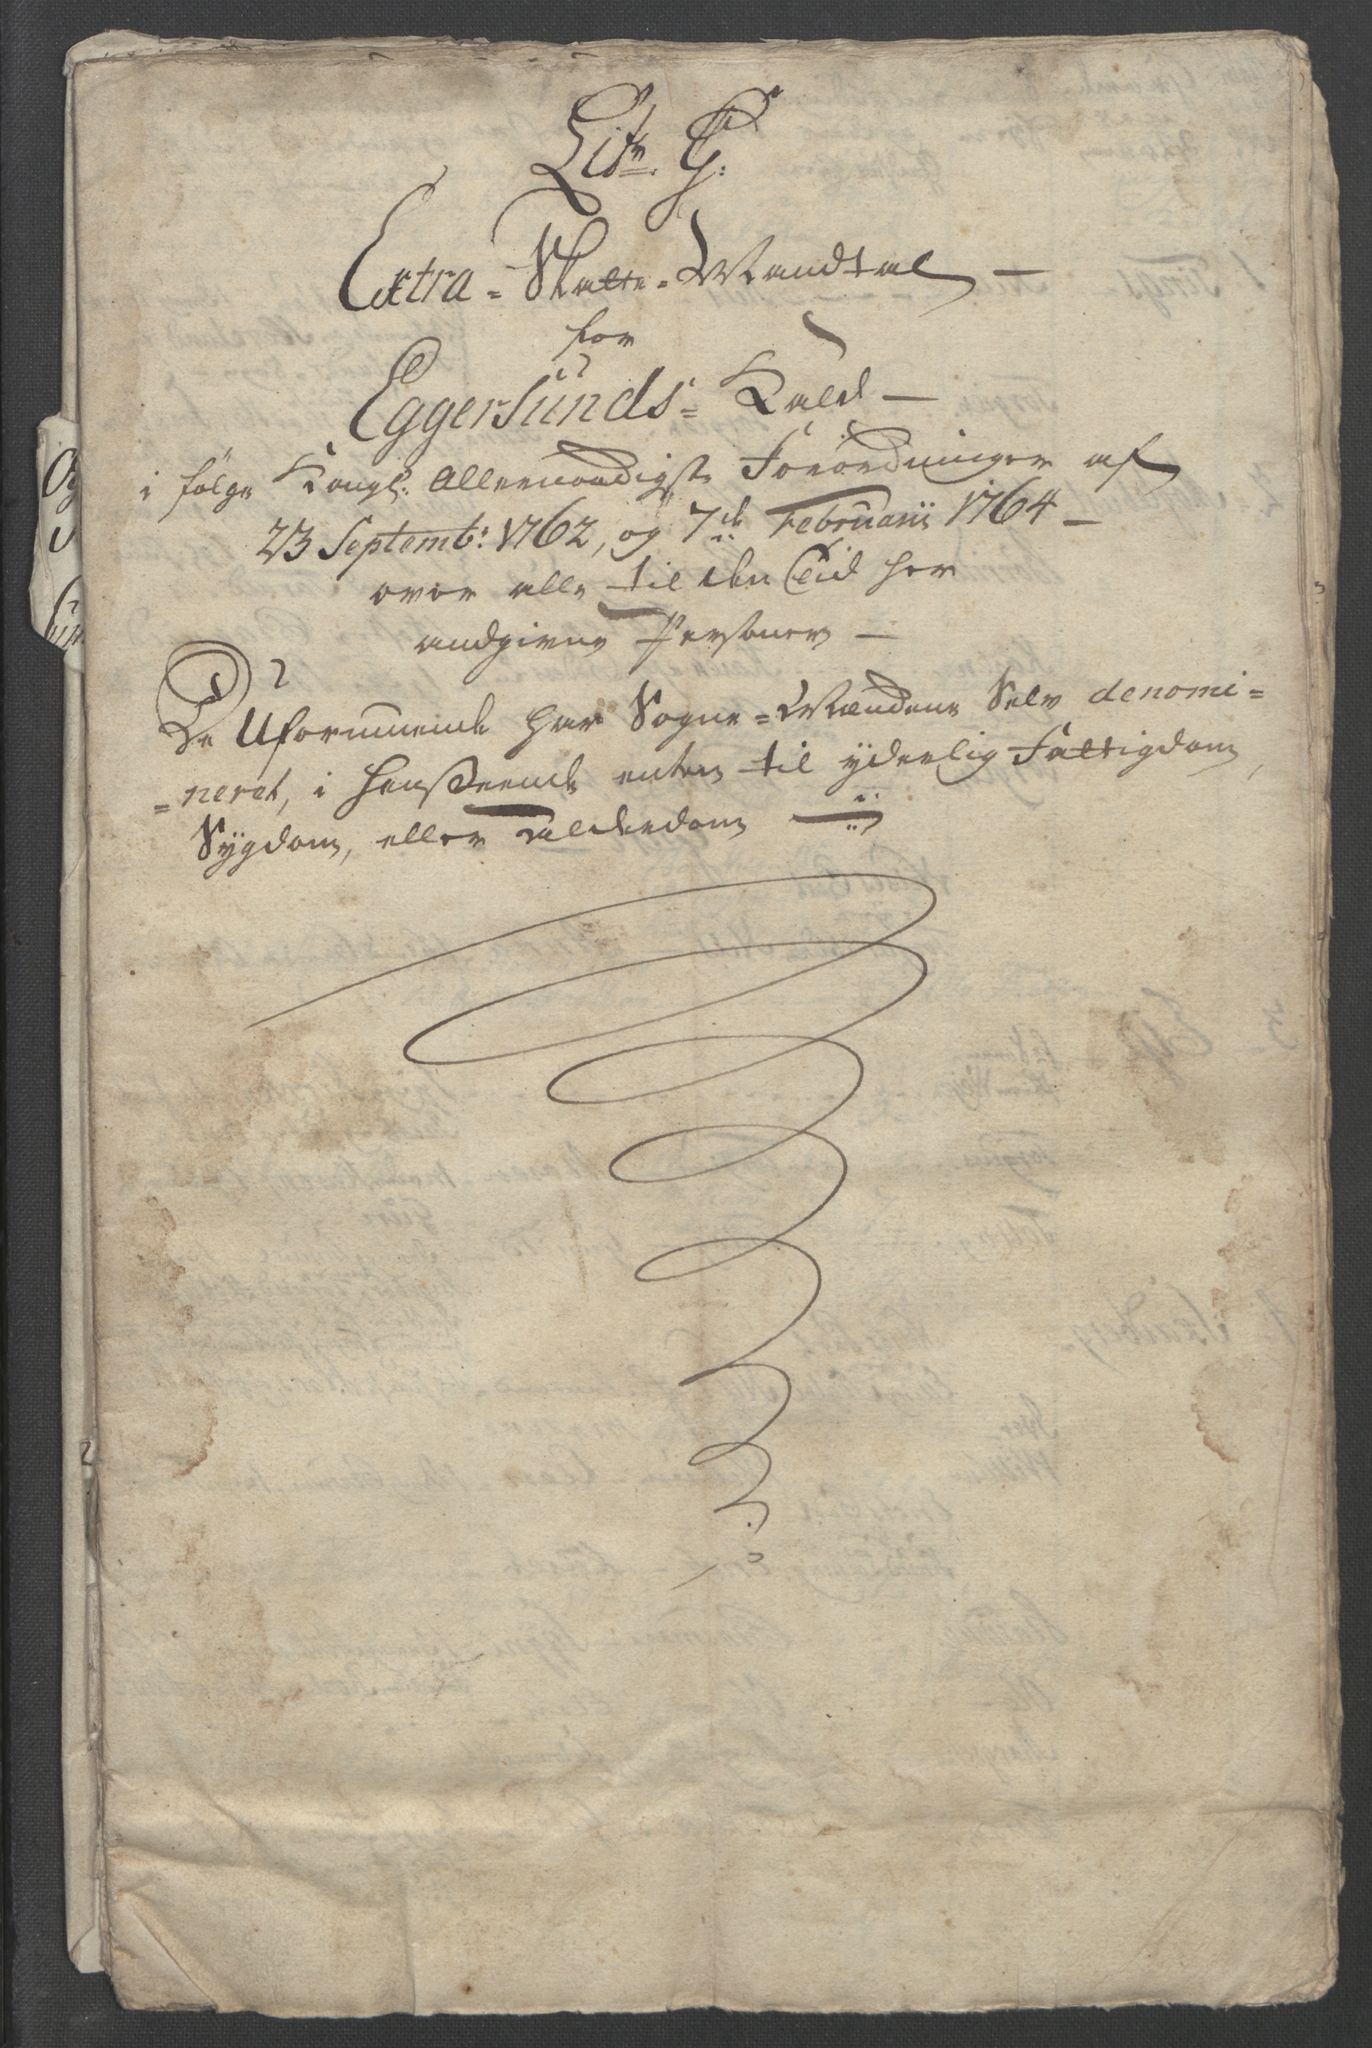 Litr. G:
Extra-Skatte-Mandtal
for
Eggersunds-Kald
i følge Kongl: Allernaadigste Forordninger af
23 Septembr: 1762, og 7de Februarii 1764
over alle til den Tid her
andgivne Personer
De Uformuende har Sogne-Mændene Selv denomi=
=neret, i henseende enten til yderlig Fattigdom,
Sygdom, eller Alderdom